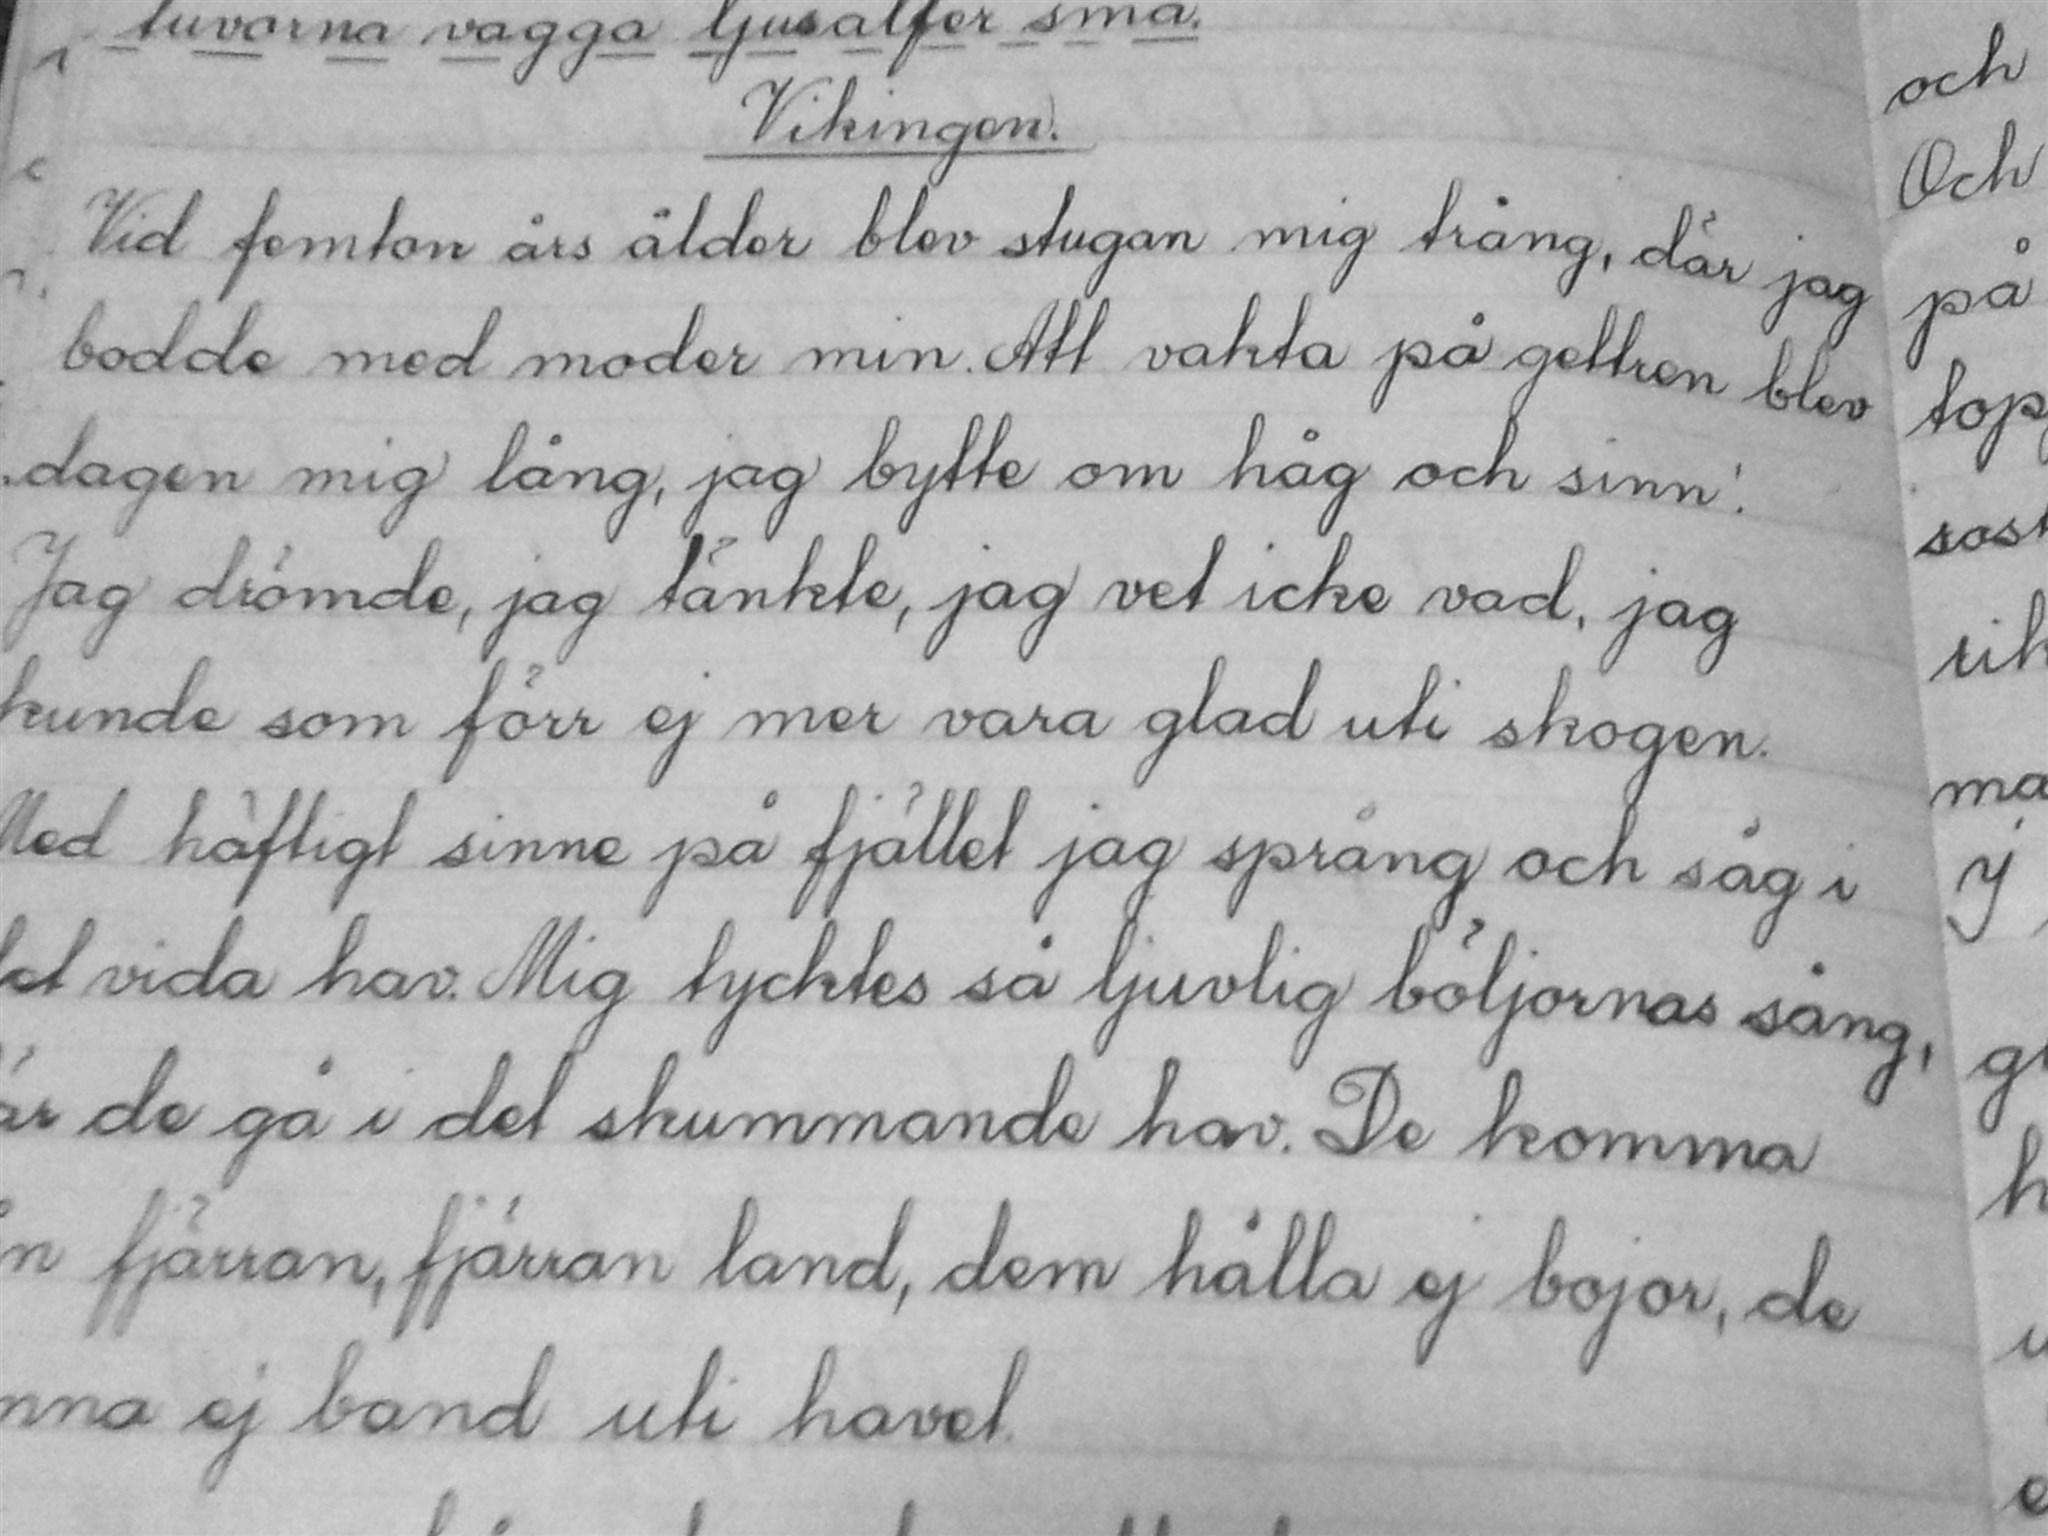 tuvorna vagga ljusalfer små.
Vikingen.
Vid femton års ålder blev stugan mig trång, där jag
bodde med moder min. Att vakta på gettren blev
dagen mig lång, jag bytte om håg och sinn'.
Jag drömde, jag tänkte, jag vet icke vad, jag
kunde som förr ej mer vara glad uti skogen.
Med häftigt sinne på fjället jag språng och såg i
det vida hav. Mig tycktes så ljuvlig böljornas sång,
där de gå i det skummande hav. De komma
ån fjärran, fjärran land, dem hålla ej bojor, de
nna ej band uti havet.
och
Och
på
top
sost
rik
ma
gl
h